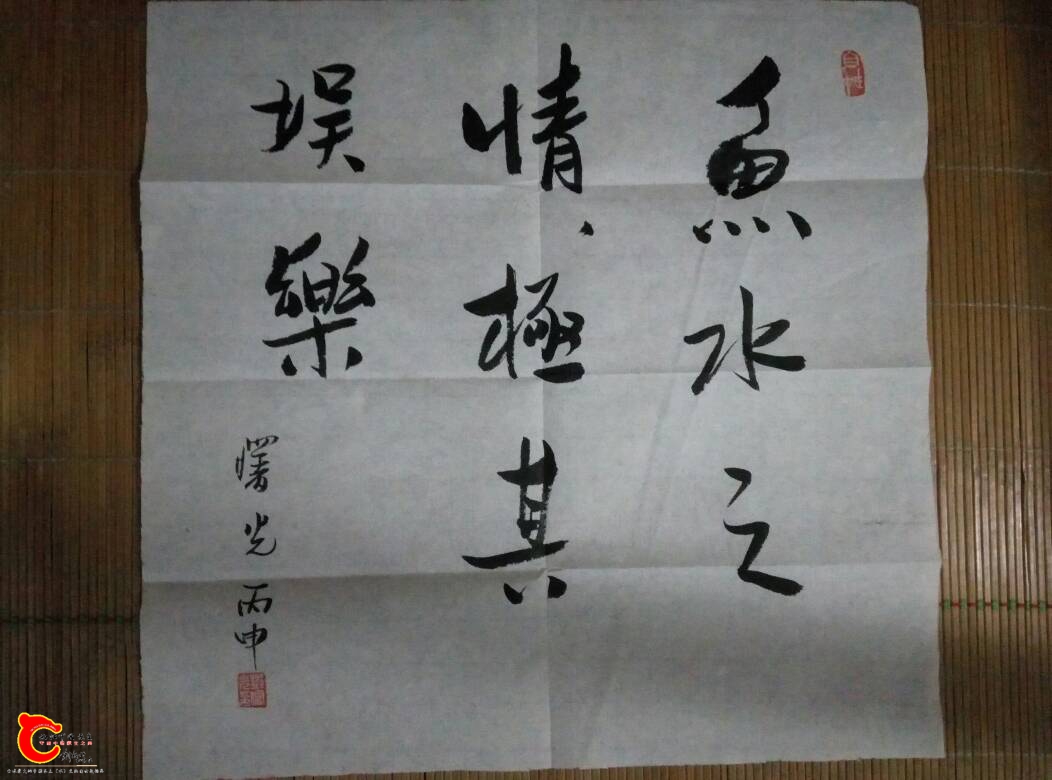 魚水之
情、極其
娱樂
曙光 丙申